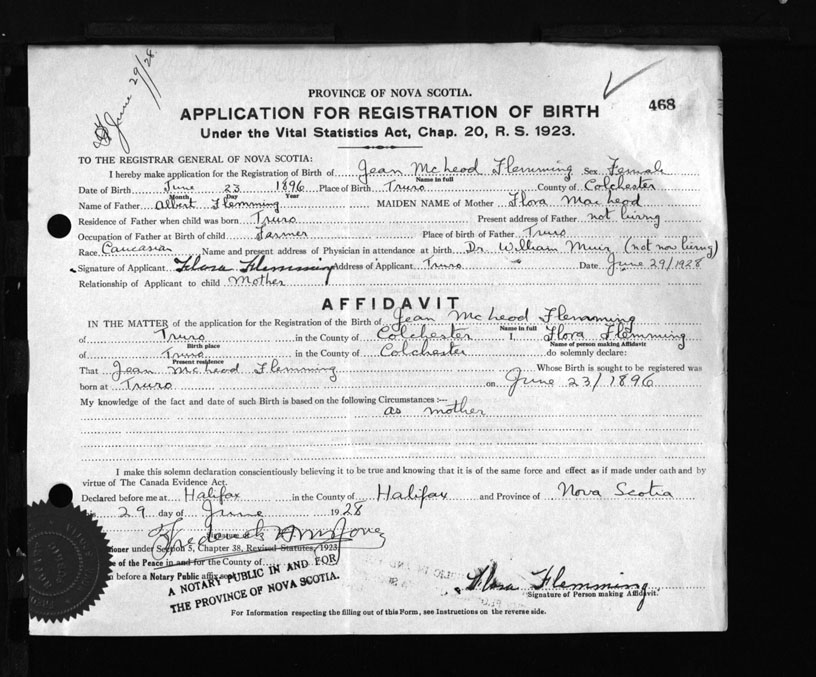 June 29/28
PROVINCE OF NOVA SCOTIA.
468
APPLICATION FOR REGISTRATION OF BIRTH
Under the Vital Statistics Act, Chap. 20, R. S. 1923.
TO THE REGISTRAR GENERAL OF NOVA SCOTIA:
I hereby make application for the Registration of Birth of Jean McLeod Flemming Sex Female
Name in full
Date of Birth June 23 1896 Place of Birth Truro County of Colchester
Month Day Year
Name of Father Albert Flemming MAIDEN NAME of Mother Flora MacLeod
Residence of Father when child was born Truro Present address of Father not living
Occupation of Father at Birth of child Farmer Place of birth of Father Truro
Race Caucasian Name and present address of Physician in attendance at birth Dr. William Muir (not now living)
Signature of Applicant Flora Flemming Address of Applicant Truro Date June 29/1928
Relationship of Applicant to child Mother
AFFIDAVIT
IN THE MATTER of the application for the Registration of the Birth of Jean McLeod Flemming
Name in full
of Truro in the County of Colchester I, Flora Flemming
Birth place Name of person making Affidavit
of Truro in the County of Colchester do solemnly declare:
Present residence
That Jean McLeod Flemming Whose Birth is sought to be registered was
born at Truro on June 23/1896
My knowledge of the fact and date of such Birth is based on the following Circumstances:—
as mother
I make this solemn declaration conscientiously believing it to be true and knowing that it is of the same force and effect as if made under oath and by
virtue of The Canada Evidence Act.
Declared before me at Halifax in the County of Halifax and Province of Nova Scotia
29 day of June 1928
under Section 5, Chapter 38, Revised Statutes, 1923
of the Peace in and for the County of
before a Notary Public affix seal
A NOTARY PUBLIC IN AND FOR
THE PROVINCE OF NOVA SCOTIA.
Flora Flemming
Signature of Person making Affidavit.
For Information respecting the filling out of this Form, see Instructions on the reverse side.